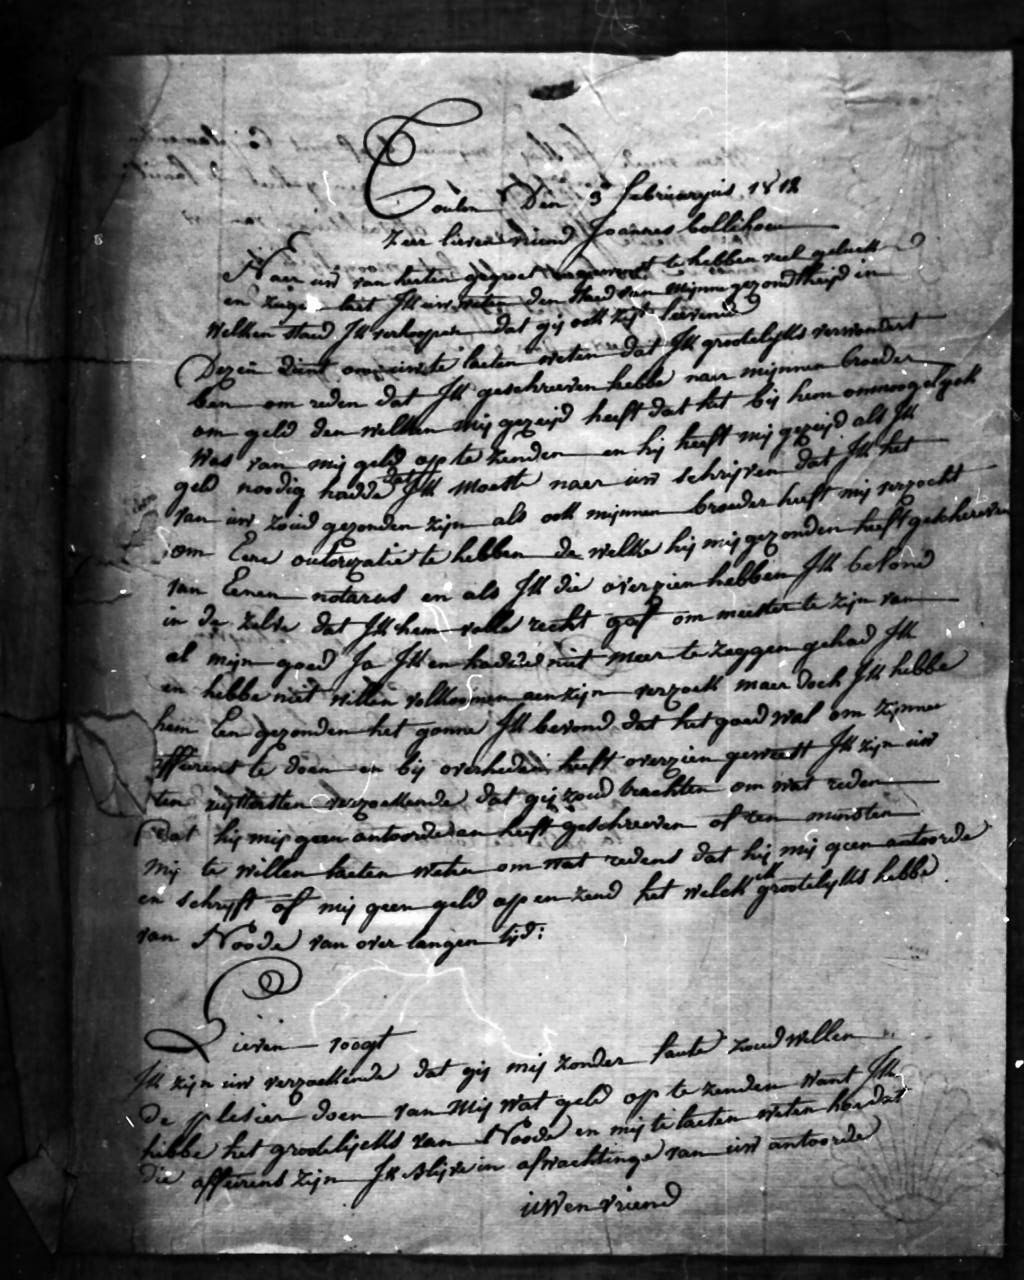 Toulon Den 3 februaryus 1812
Zeer lieven vriend Joannes Collihou
Naer uw van herten gegroet te hebben veel geluck
en laet Jk uw weten den staed van mijne gezondtheijd in
welken staed Jk verhoopen dat gij ook zijt levende
Dezen dient om uw te laeten weten dat Jk grootelijks verwondert
ben om reden dat Jk geschreeven hebbe naer mijnnen broeder
om geld den welken mij gezeijd heeft dat het bij hem onmoogelyck
was van mij geld op te zenden en hij heeft mij gezeijd als Jk
geld noodig hadde dat Jk moeste naer uw schrijven dat Jk het
van uw zoud gezonden zijn als ook mijnnen broeder heeft mij verzocht
om Eene autorizatie te hebben de welke hij mij gezonden heeft geschreven
van Eenen notarus en als Jk die overzien hebben Jk bevond
in de zelve dat Jk hem volle recht gaf om meester te zijn van
al mijn goed Ja Jk en hadde niet meer te zeggen gehad Jk
en hebbe niet willen volkoomen aen zijn verzoek maer doch Jk hebbe
hem Een gezonden het gonne Jk bevond dat het goed was om zijnne
affeirens te doen en bij overheden heeft overzien geweest Jk zijn uw
ten verzoekende dat gij zoud trachten om wat reden
Dat hij mij geen antoorde an heeft geschreeven of ten minsten
mij te willen laeten weten om wat redens dat hij mij geen antoorde
en schrijft of mij geen geld op en zend het welck ik grootelijks hebbe
van Noode van over langen tijd:
Lieven voogt
Jk zijn uw verzoekende dat gij mij zonder faute zoud willen
de plesier doen van Mij wat geld op te zenden want Jk
hebbe het grootelijcks van Noode en mij te laeten weten hoe dat
die affeirens zijn Jk blijve in afwachtinge van uw antoorde
uwen vriend